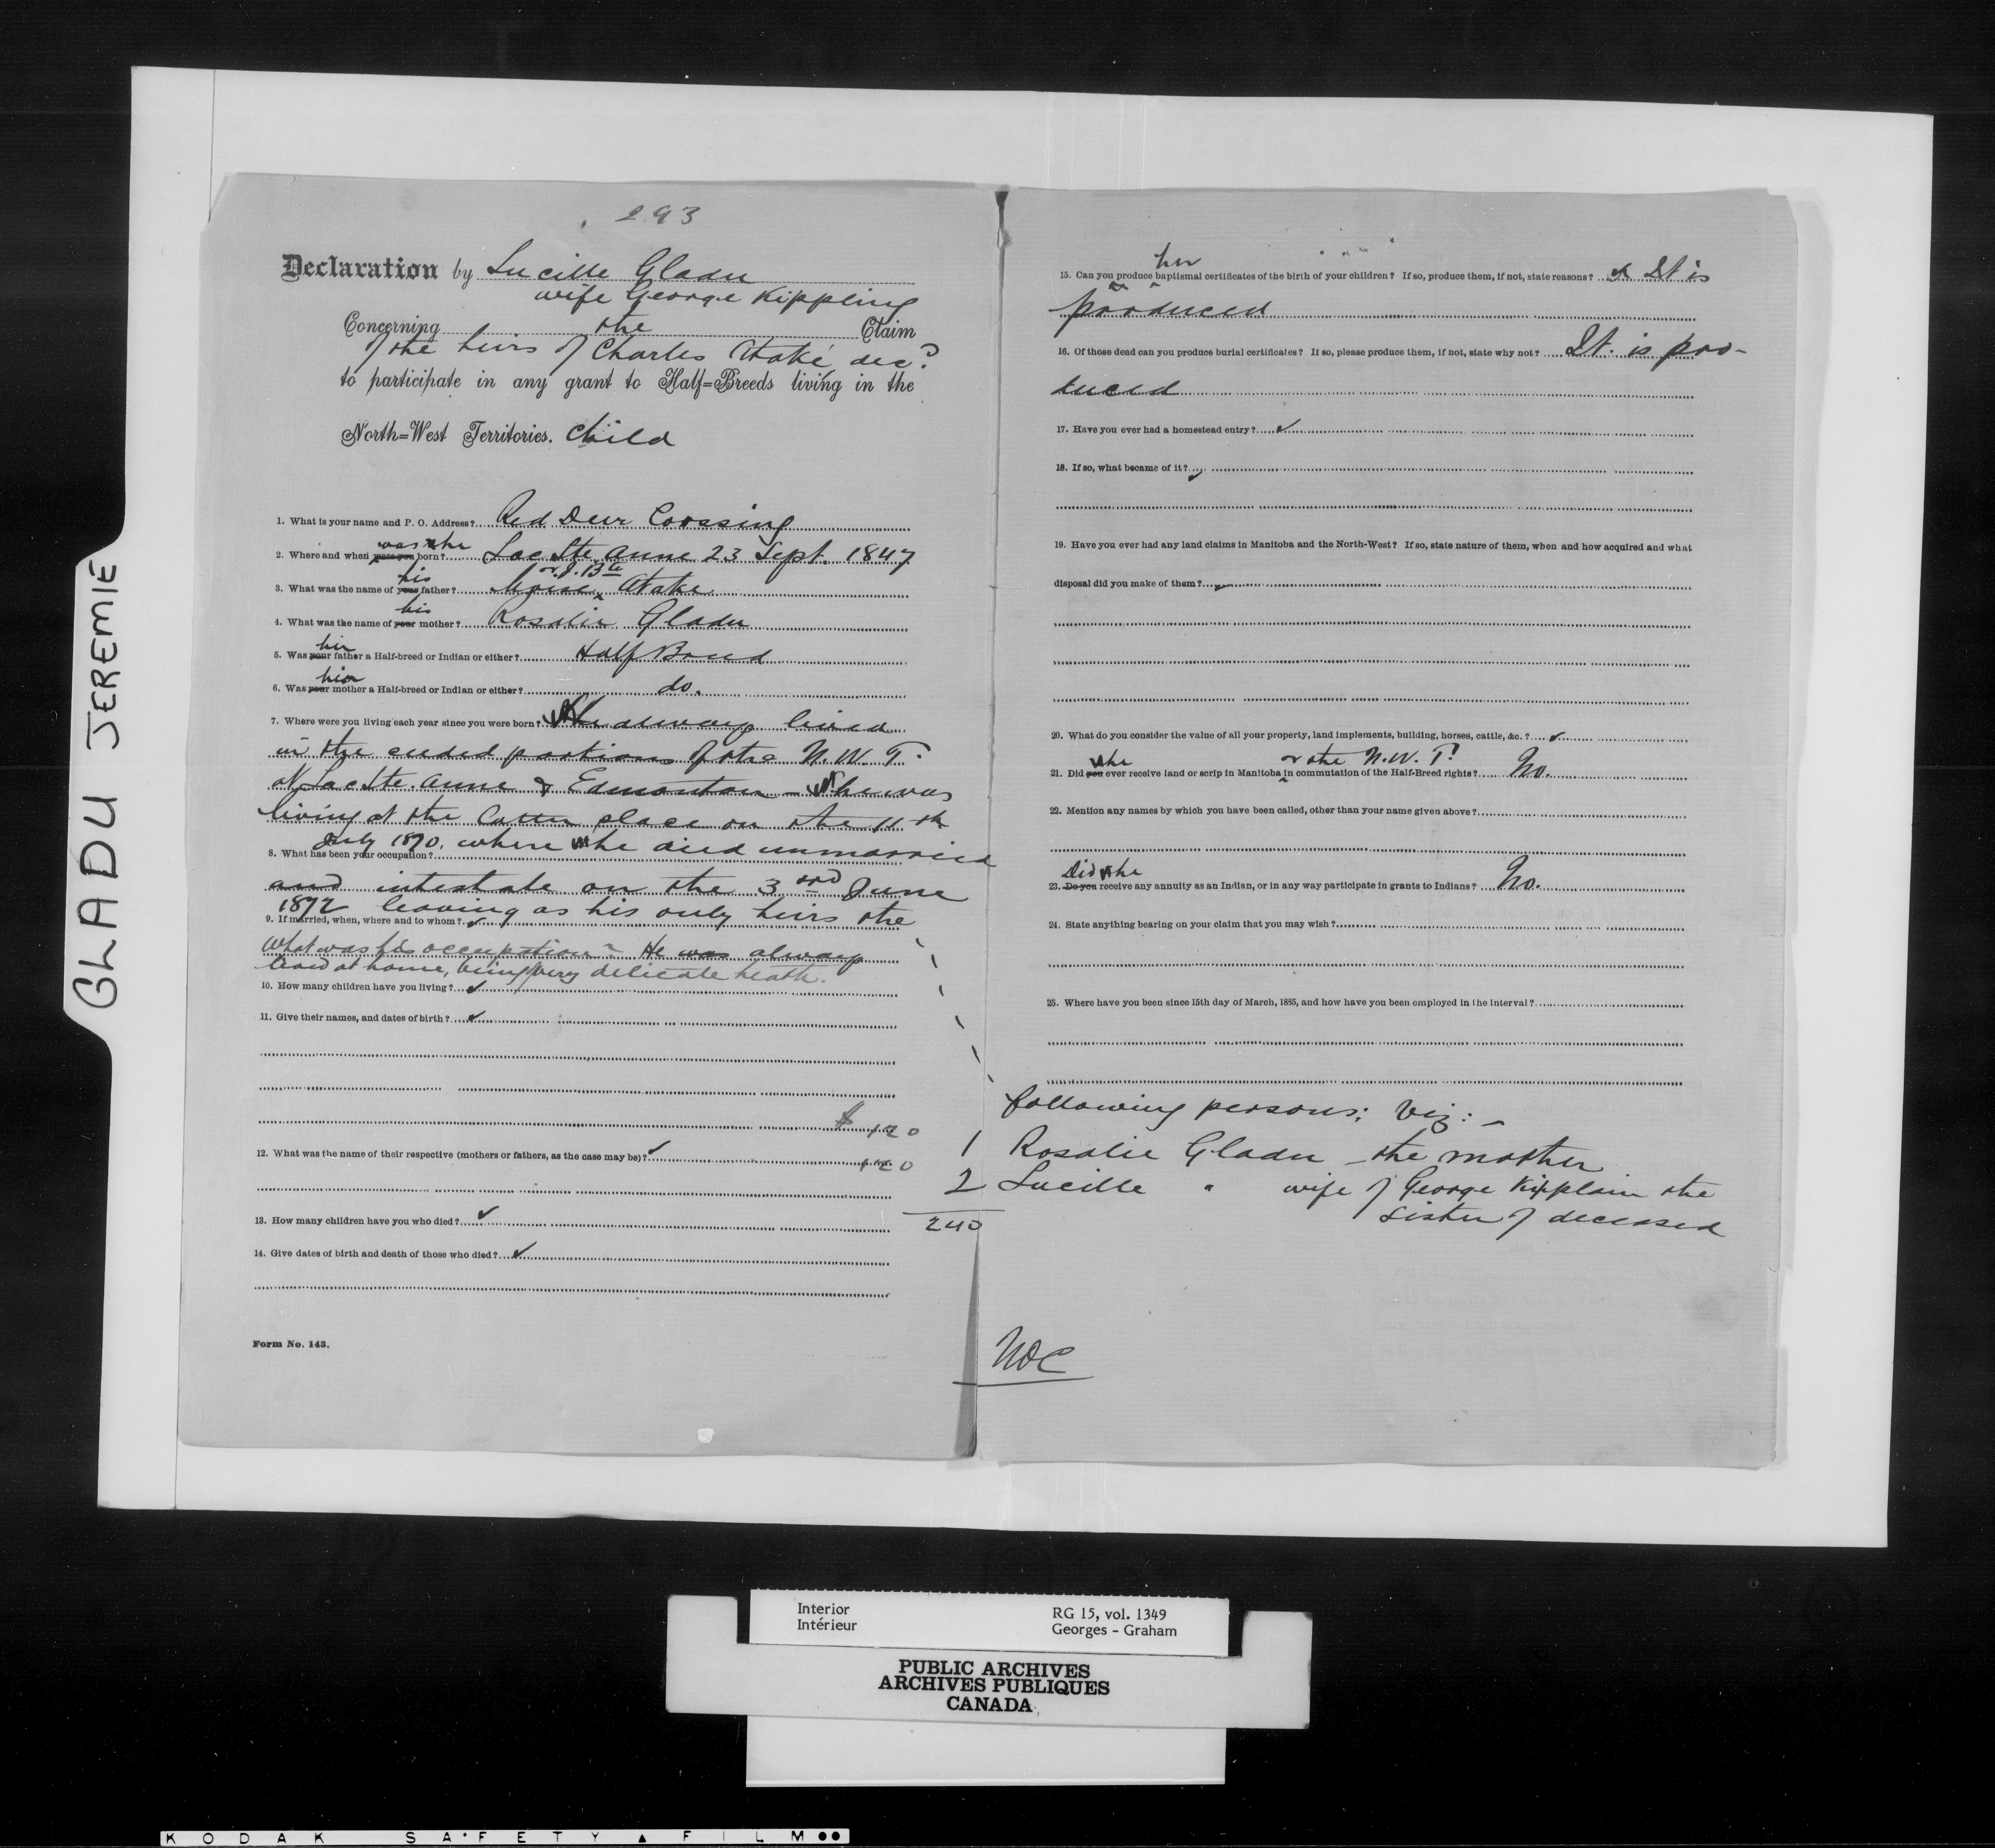 GLADU JEREMIE
293
Declaration by Lucille Gladu
wife George Kippling
Concerning the Claim
of the heirs of Charles Ataké, dec?
to participate in any grant to Half=Breeds living in the
North=West Territories. Child
1. What is your name and P. O. Address? Red Deer Crossing
was he
2. Where and when were you born? Lac Ste Anne 23 Sept. 1847
his or J. Bte
3. What was the name of your father? Moise Atake
his
4. What was the name of your mother? Rosalie Gladu
his
5. Was your father a Half-breed or Indian or either? Half Breed
his
6. Was your mother a Half-breed or Indian or either? do.
7. Where were you living each year since you were born? He always lived
in the ceded portions of the N. W. T.
at Lac Ste. Anne & Edmonton - he was
living at the latter place on the 11th
July 1870, where he died unmarried
8. What has been your occupation?
and intestate on the 3rd June
1872 leaving as his only heirs the
9. If married, when, where and to whom?
What was his occupation? He was always
lived at home, being very delicate heath.
10. How many children have you living?
11. Give their names, and dates of birth?
$ 120
12. What was the name of their respective (mothers or fathers, as the case may be)?
120
13. How many children have you who died?
240
14. Give dates of birth and death of those who died?
Form No. 143.
her
15. Can you produce baptismal certificates of the birth of your children? If so, produce them, if not, state reasons? It is
produced
16. Of those dead can you produce burial certificates? If so, please produce them, if not, state why not? It is pro-
duced
17. Have you ever had a homestead entry?
18. If so, what became of it?
19. Have you ever had any land claims in Manitoba and the North-West? If so, state nature of them, when and how acquired and what
disposal did you make of them?
20. What do you consider the value of all your property, land implements, building, horses, cattle, &c. ?
he or the N. W. T?
21. Did you ever receive land or scrip in Manitoba in commutation of the Half-Breed rights? No.
22. Mention any names by which you have been called, other than your name given above?
Did he
23. Do you receive any annuity as an Indian, or in any way participate in grants to Indians? No.
24. State anything bearing on your claim that you may wish?
25. Where have you been since 15th day of March, 1885, and how have you been employed in the interval?
following persons; Viz: -
1 Rosalie Gladu - the mother
2 Lucille " wife of George Kipplain the
sister of deceased
Interior RG 15, vol. 1349
Intérieur Georges - Graham
PUBLIC ARCHIVES
ARCHIVES PUBLIQUES
CANADA
KODAK SAFETY FILM